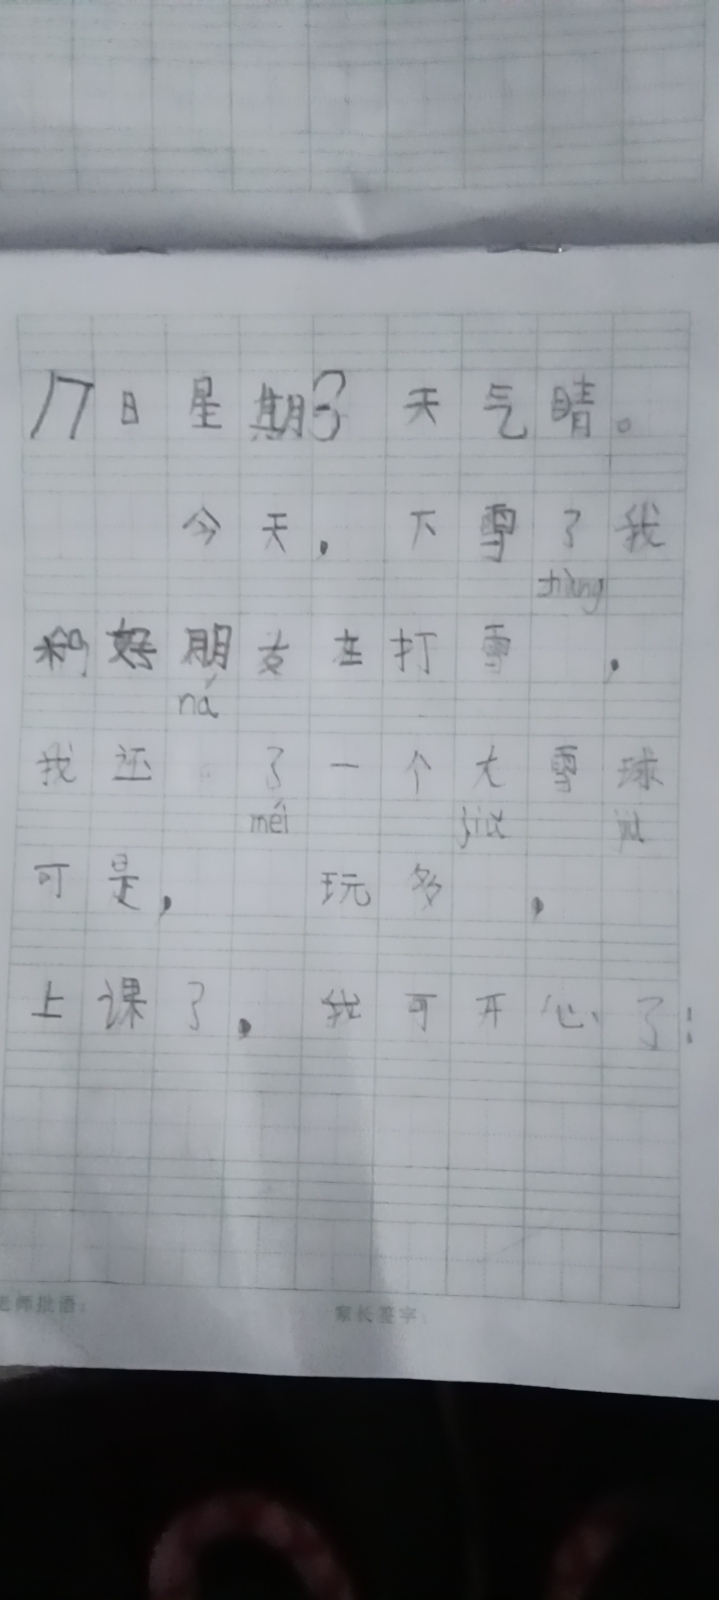 17日星期3天气晴。
今天，下雪了我
zhàng
和好朋友在打雪，
ná
我还了一个大雪球
méi jiǔ jiù
可是，玩多，
上课了，我可开心了！
老师批语：家长签字：